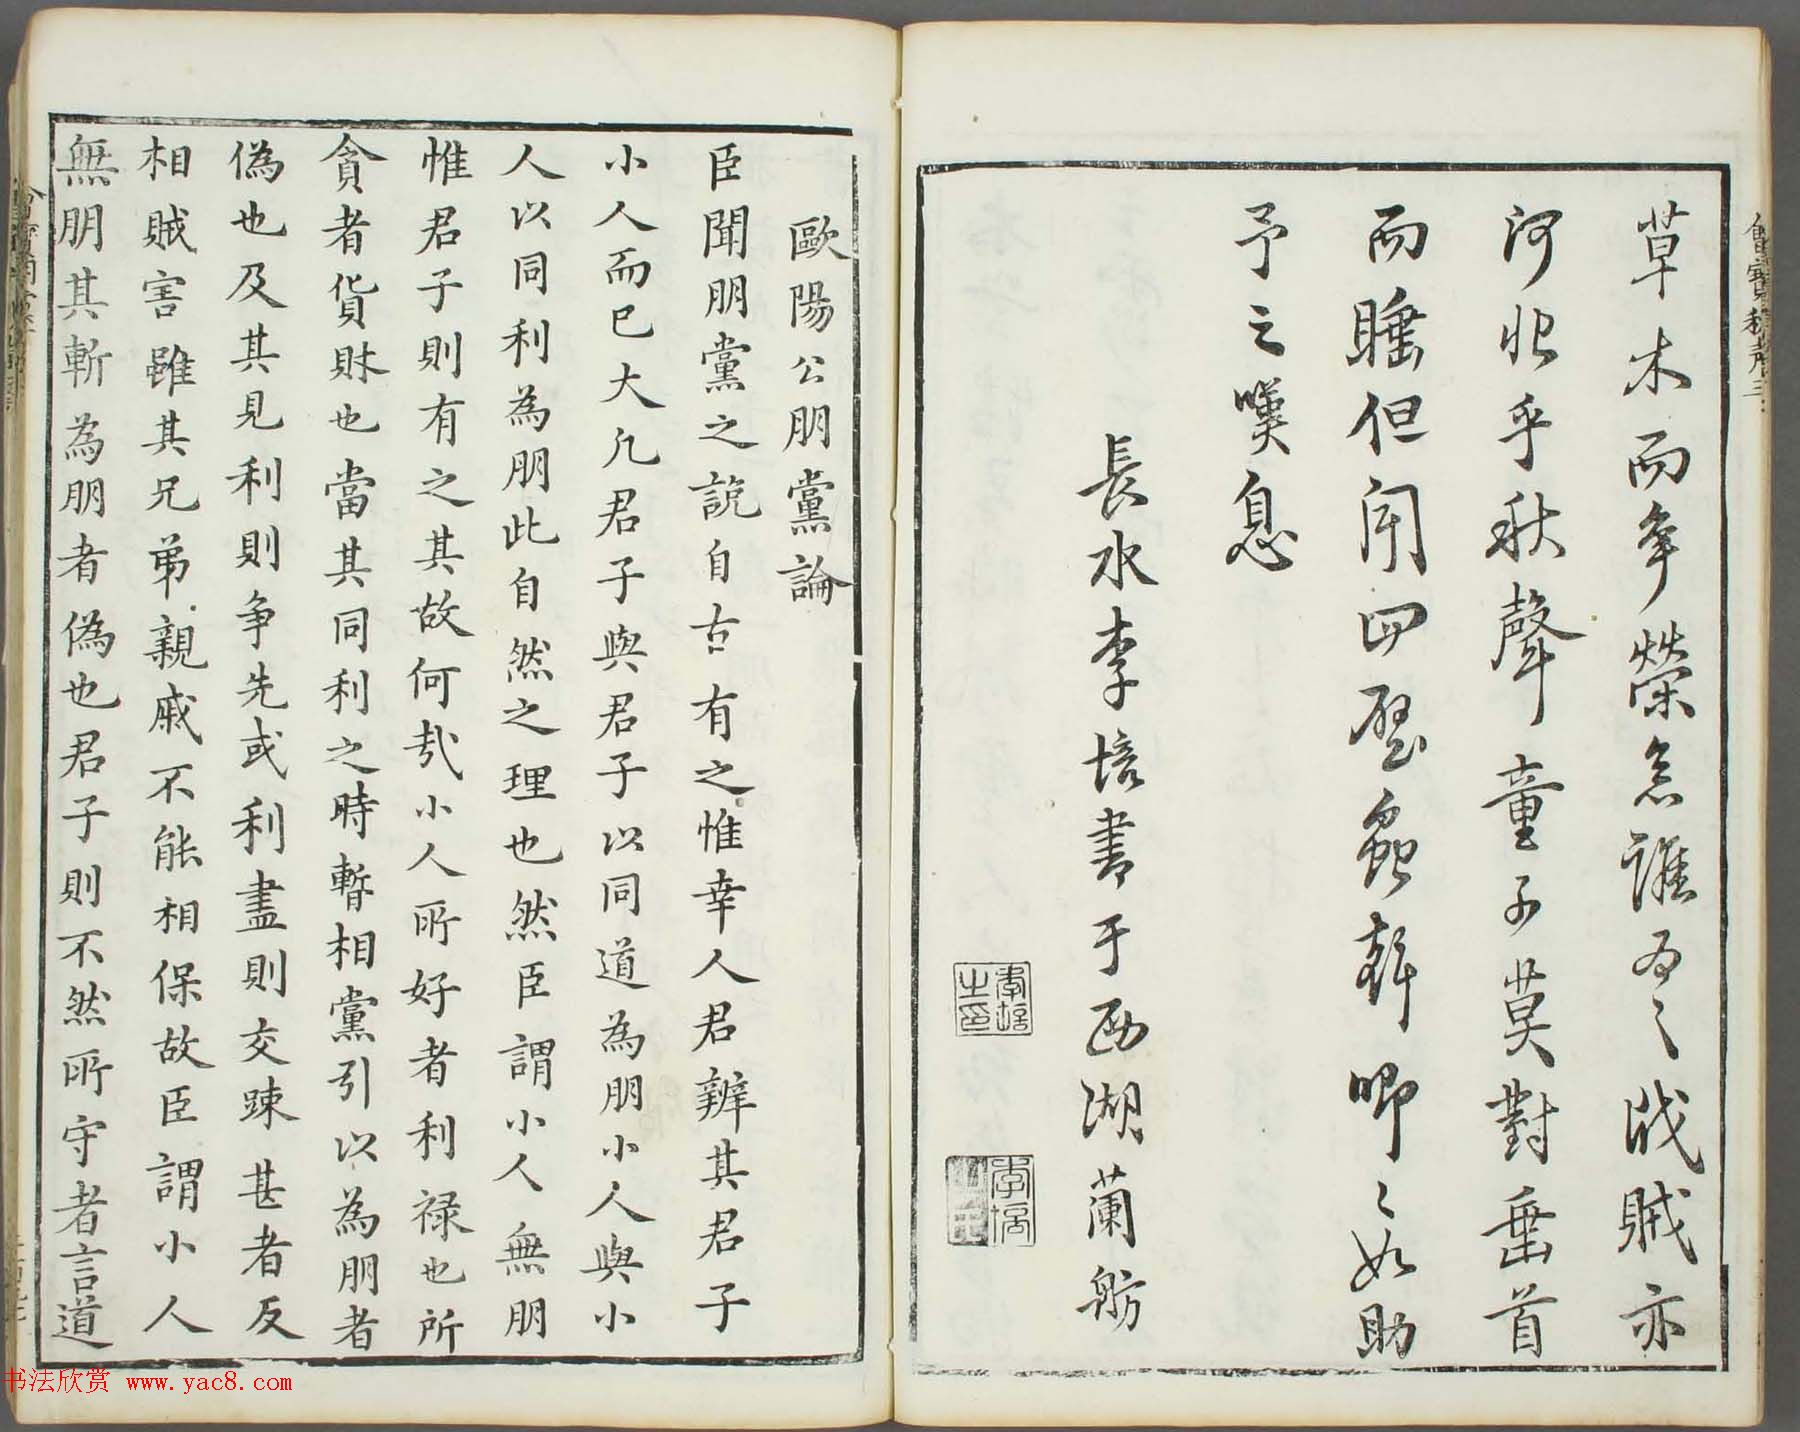 草木而爭榮念誰為之戕賊亦
何恨乎秋聲童子莫對垂首
而睡但聞四壁蟲聲唧〻如助
予之嘆息
長水李培書于西湖蘭舫
李培之印
歐陽公朋黨論
臣聞朋黨之說自古有之惟幸人君辨其君子
小人而已大凡君子與君子以同道為朋小人與小
人以同利為朋此自然之理也然臣謂小人無朋
惟君子則有之其故何哉小人所好者利祿也所
貪者貨財也當其同利之時暫相黨引以為朋者
偽也及其見利則争先或利盡則交踈甚者反
相賊害雖其兄弟親戚不能相保故臣謂小人
無朋其暫為朋者偽也君子則不然所守者言道
书法欣赏 www.yac8.com